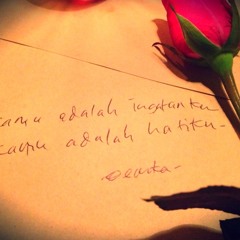 kamu adalah ingatanku
kamu adalah hatiku -